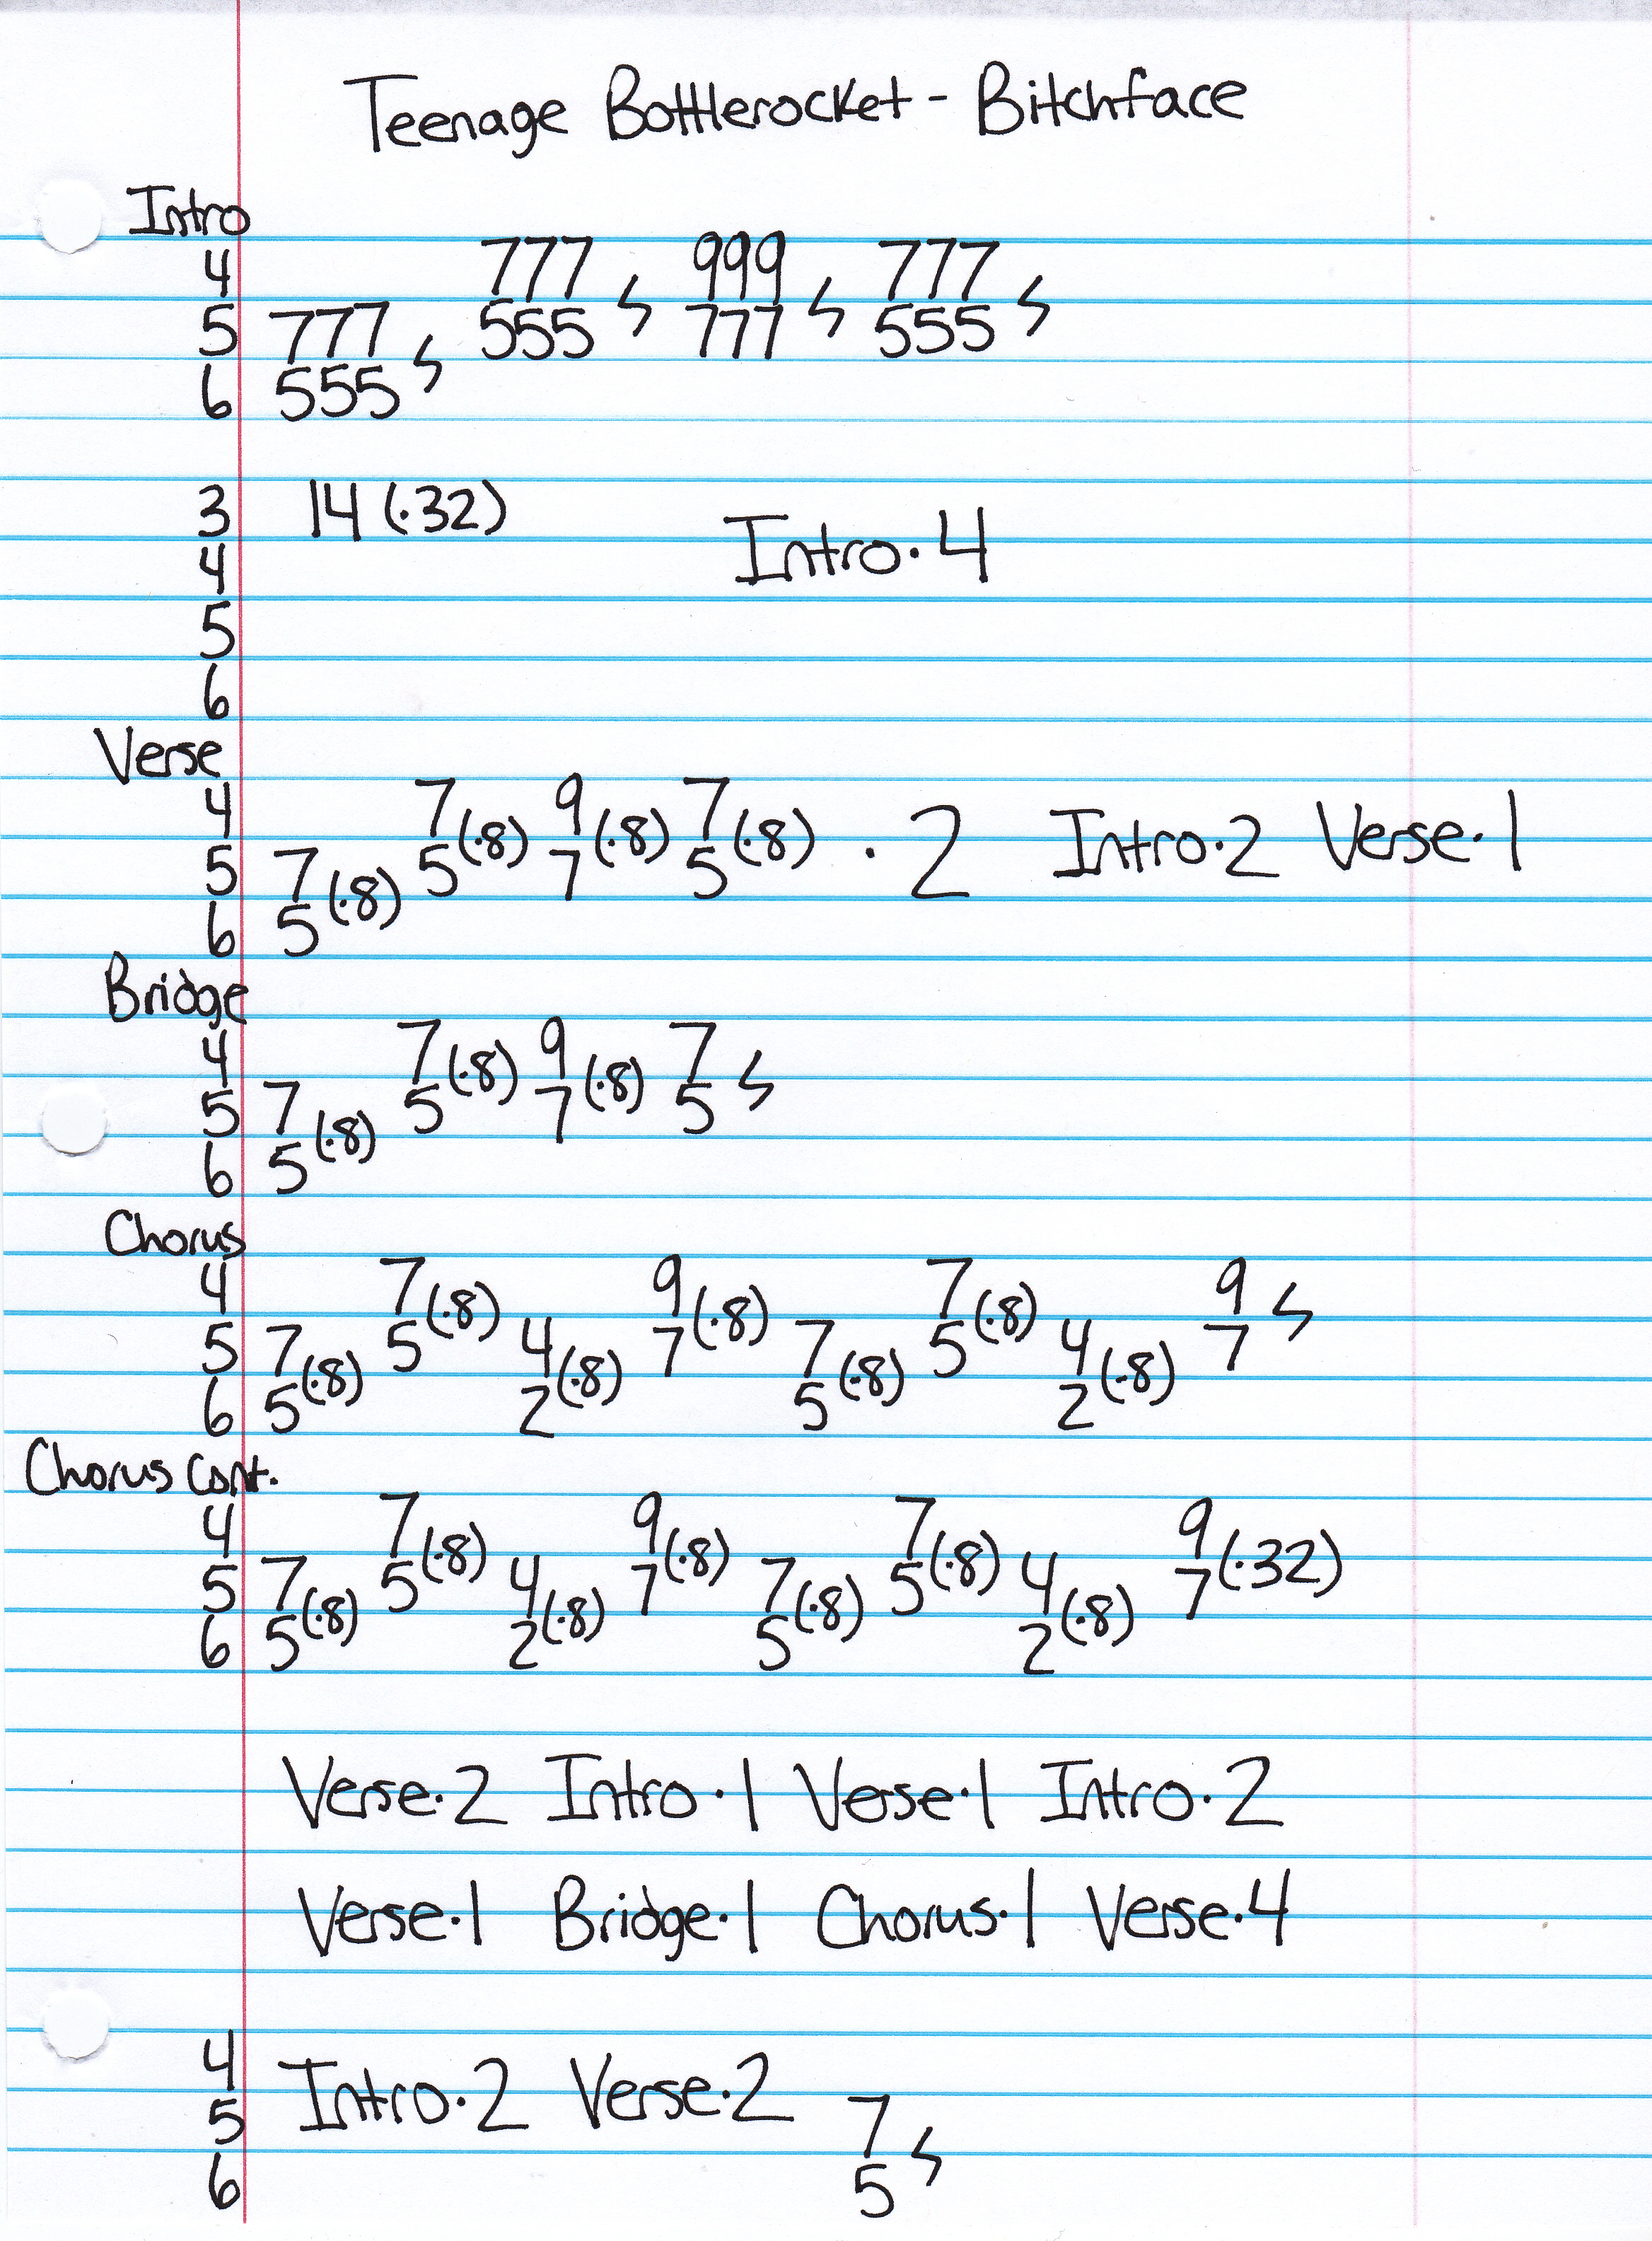 Teenage Bottlerocket - Bitchface
Intro
4 777 ϟ 999 ϟ 777 ϟ
5 777 ϟ 555 777 555
6 555
3 14 (·32)
4 Intro·4
5
6
Verse
4 7 (·8) 9 (·8) 7 (·8)
5 7 (·8) 5 7 5 · 2 Intro·2 Verse·1
6 5
Bridge
4 7 (·8) 9 (·8) 7 ϟ
5 7 (·8) 5 7 5
6 5
Chorus
4 7 (·8) 9 (·8) 7 (·8) 9 ϟ
5 7 (·8) 5 4 (·8) 7 7 (·8) 5 4 (·8) 7
6 5 2 5 2
Chorus Cont.
4 7 (·8) 9 (·8) 7 (·8) 9 (·32)
5 7 (·8) 5 4 (·8) 7 7 (·8) 5 4 (·8) 7
6 5 2 5 2
Verse·2 Intro·1 Verse·1 Intro·2
Verse·1 Bridge·1 Chorus·1 Verse·4
4 Intro·2 Verse·2
5 7 ϟ
6 5